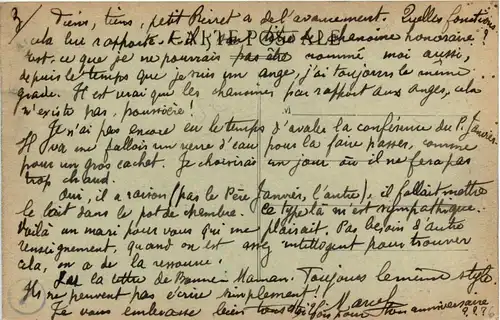 3/ Tiens, tiens, petit Pierret a de l'avancement. Quelles fonctions
cela lui rapporte-t-il, ce titre de chanoine honoraire?
CARTE POSTALE
Est-ce que je ne pourrais pas être nommé, moi aussi,
depuis le temps que je suis un ange, j'ai toujours le même
grade. Il est vrai que les chanoines par rapport aux anges, cela
n'existe pas, pauvrière!
Je n'ai pas encore eu le temps d'avaler la conférence du P. Janvier
Il va me falloir un verre d'eau pour la faire passer, comme
pour un gros cachet. Je choisirai un jour où il ne fera pas
trop chaud.
Oui, il a raison (pas le Père Janvier, l'autre), il fallait mettre
le lait dans le pot de chambre. Ce type là m'est sympathique.
Voilà un mari pour vous qui me plairait. Pas besoin d'autre
renseignement, quand on est assez intelligent pour trouver
cela, on a de la ressource!
J'ai la lettre de Bonne Maman. Toujours le même style.
Ils ne peuvent pas écrire simplement!
Je vous embrasse bien tous
pour ton anniversaire
???